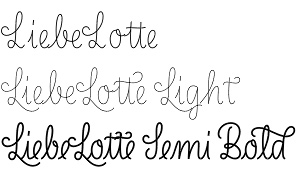 LiebeLotte
LiebeLotte Light
LiebeLotte Semi Bold